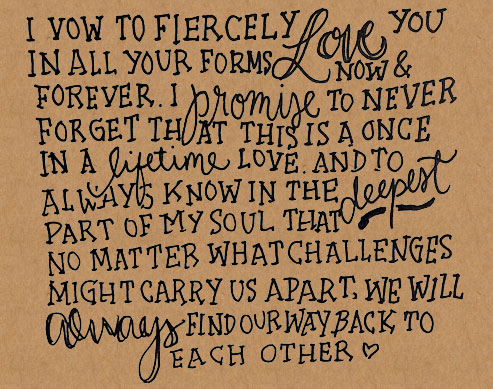 I VOW TO FIERCELY Love YOU
IN ALL YOUR FORMS NOW &
FOREVER. I promise TO NEVER
FORGET THAT THIS IS A ONCE
IN A lifetime LOVE. AND TO
ALWAYS KNOW IN THE deepest
PART OF MY SOUL THAT
NO MATTER WHAT CHALLENGES
MIGHT CARRY US APART, WE WILL
always FIND OUR WAY BACK TO
EACH OTHER ♡